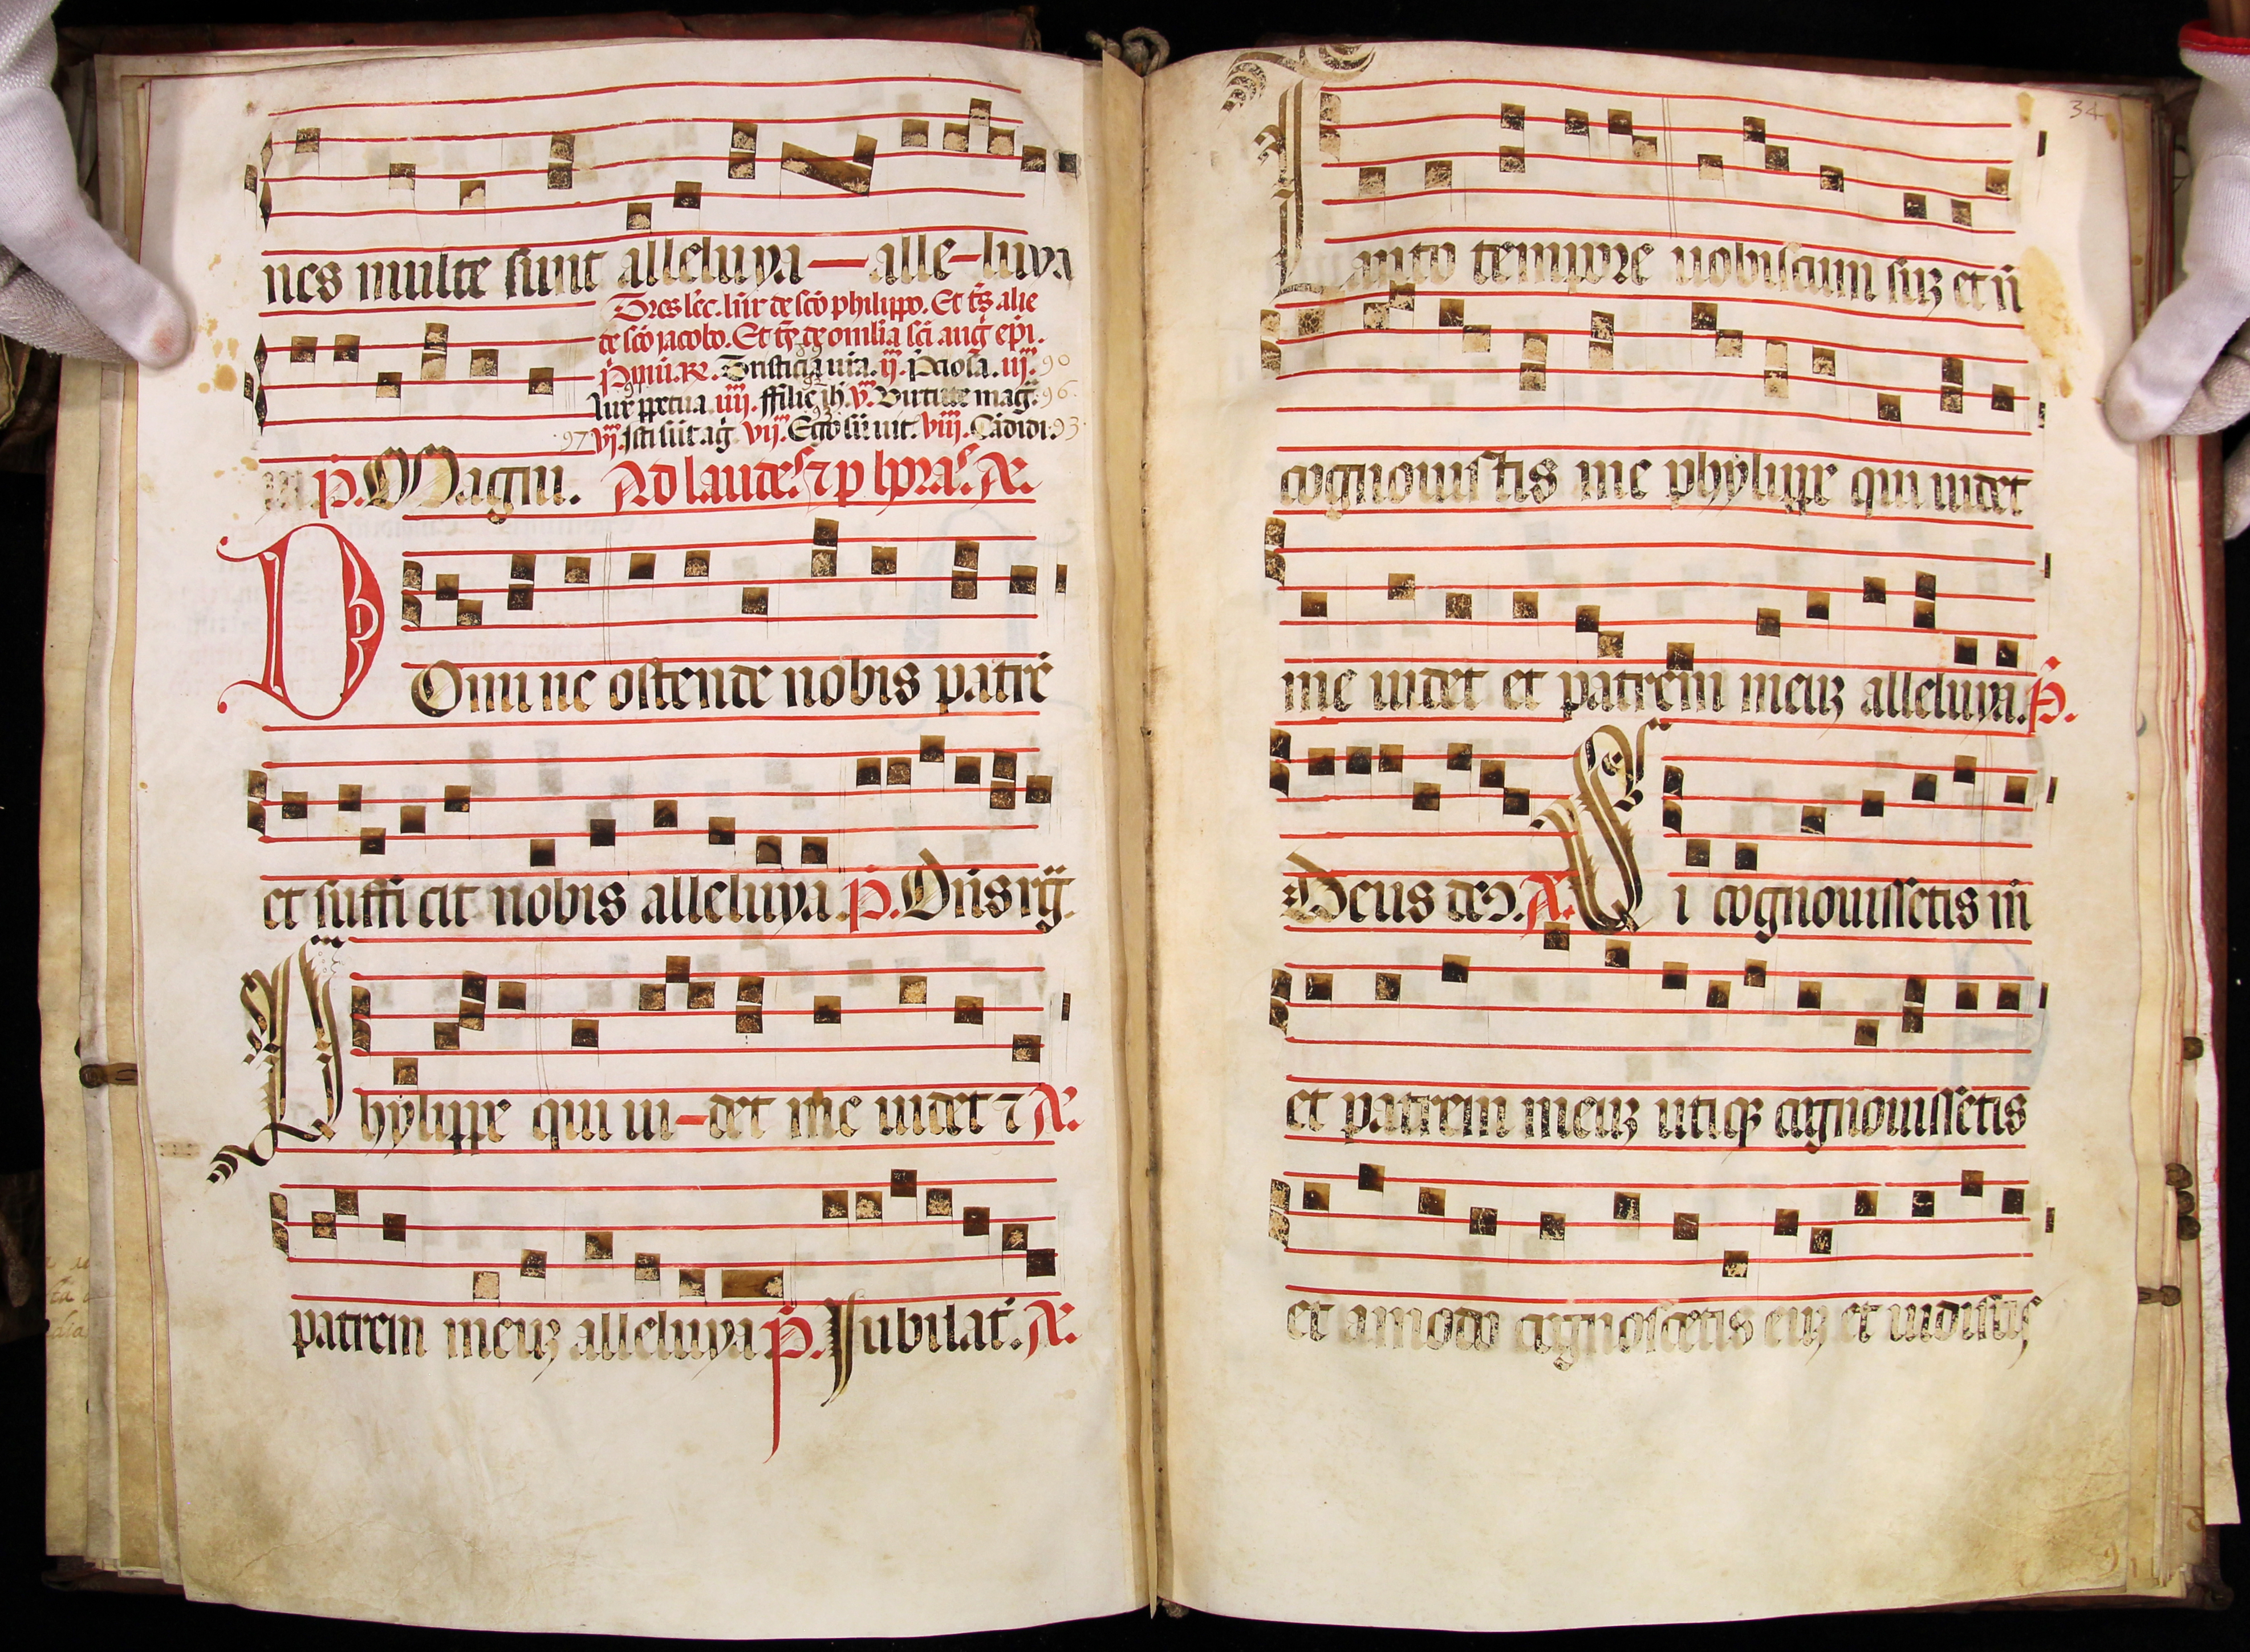 nes multe sunt alleluya — alle-luya
Tres lec. lur de sco philippo. Et ts alie
de sco jacobo. Et ts de omilia sci aug epi.
Tristicia ura. ij. Pciosa. iij. 90
lux ppetua. iiij. ffilie ih. v. Virtute mag. 96
97 vj. Isti sut ag. vij. Ego su uit. viij. Cadidi. 93
p. Magnu. Ad laudes ⁊ p horas. A.
Domine ostende nobis patre
et sufficit nobis alleluya. p. Dns rg.
Phylippe qui ui-det me uidet ⁊ A.
patrem meuz alleluya p. Jubilat. A.
34
Tanto tempore uobiscum suz et n
cognouistis me phylippe qui uidet
me uidet et patrem meuz alleluya. p.
Deus deꝰ. A. Si cognouissetis m
et patrem meuz utiqꝫ cognouissetis
et amodo cognoscetis euz et uidistis